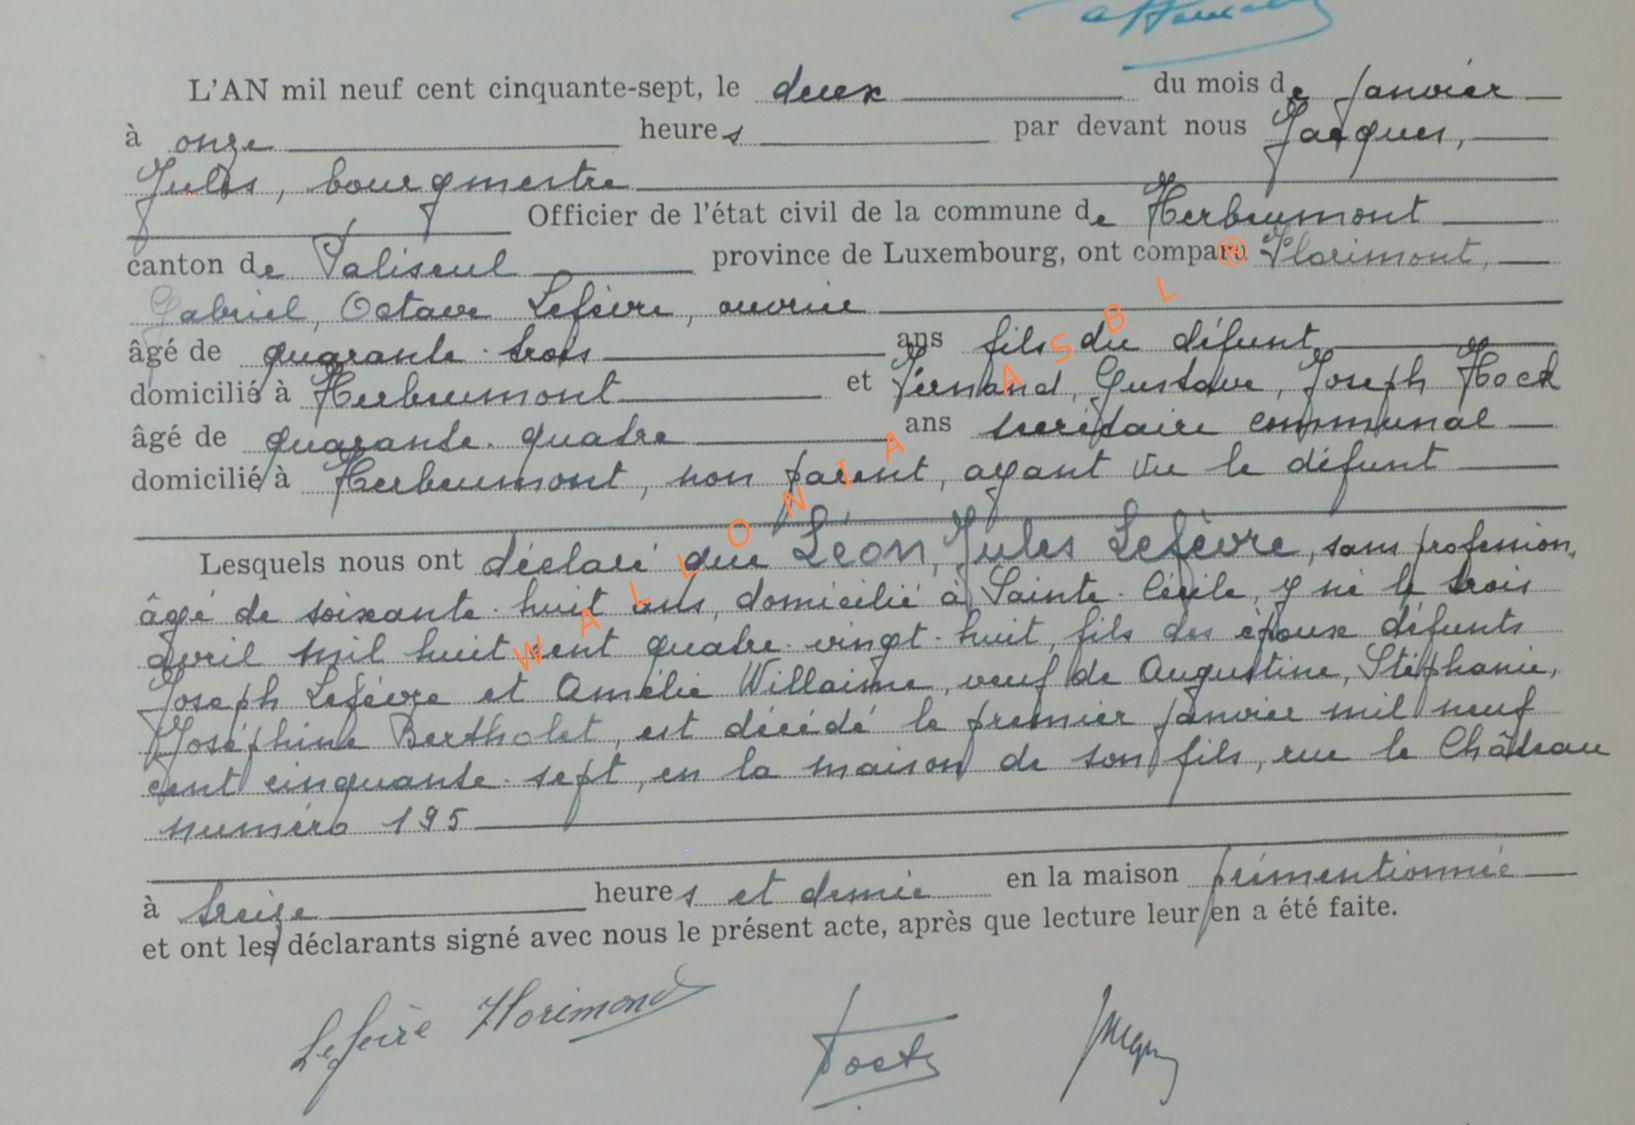 L'AN mil neuf cent cinquante-sept, le deux du mois de janvier
à onze heures par devant nous Jacques,
Jules, bourgmestre
Officier de l'état civil de la commune de Herbeumont
canton de Paliseul province de Luxembourg, ont comparu Florimont,
Gabriel, Octave Lefèvre, ouvrier
âgé de quarante-trois ans fils du défunt
domicilié à Herbeumont et Fernand, Gustave, Joseph Hock
âgé de quarante-quatre ans secrétaire communal
domicilié à Herbeumont, non parent, ayant vu le défunt
Lesquels nous ont déclaré que Léon, Jules Lefèvre, sans profession,
âgé de soixante-huit ans, domicilié à Sainte-Cécile, y né le trois
avril mil huit cent quatre-vingt-huit, fils des époux défunts
Joseph Lefèvre et Amélie Willaime, veuf de Augustine, Stéphanie,
Joséphine Bertholet, est décédé le premier janvier mil neuf
cent cinquante-sept, en la maison de son fils, rue le Château
numéro 195
à treize heures et demie en la maison primentionnée
et ont les déclarants signé avec nous le présent acte, après que lecture leur en a été faite.
Lefèvre Florimond
WALLONIA ASBL ®